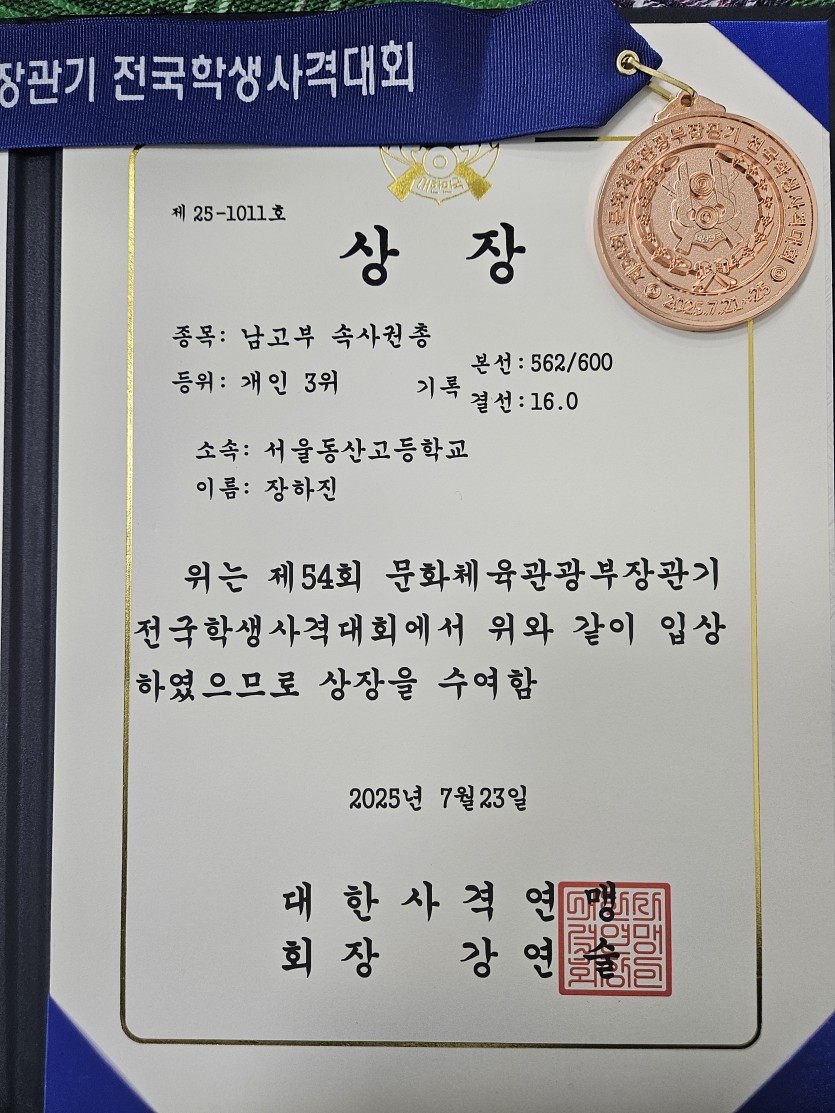 장관기 전국학생사격대회
대한민국
제 25-1011호
상 장
종목: 남고부 속사권총
등위: 개인 3위
기록
본선:562/600
결선:16.0
소속: 서울동산고등학교
이름: 장하진
위는 제54회 문화체육관광부장관기
전국학생사격대회에서 위와 같이 입상
하였으므로 상장을 수여함
2025년 7월23일
대한사격연맹
회장 강연술
제54회 문화체육관광부장관기 전국학생사격대회
2025.7.21~28